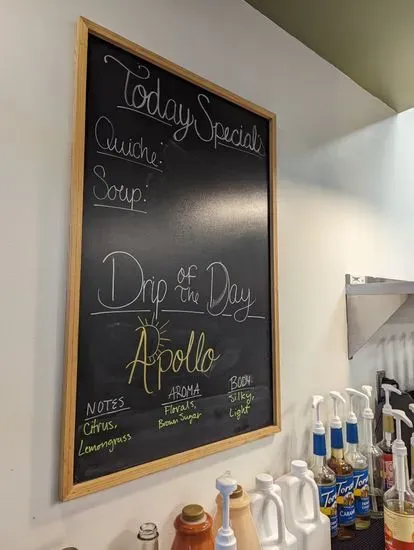 Today Specials
Quiche:
Soup:
Drip of The Day
Apollo
NOTES
Citrus,
Lemongrass
AROMA
Florals,
Brown Sugar
BODY
Silky,
Light
Torani
Torani